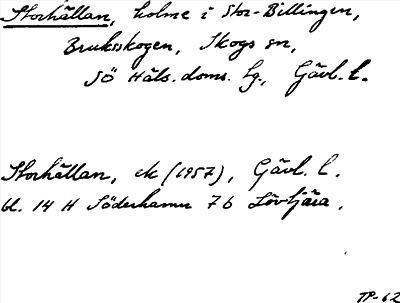 Storhällan, holme i Stor-Billingen,
Bruksskogen, Skogs sn,
Sö Häls. doms. lg., Gävl. l.
Storhällan, ek (1957), Gävl. l.
bl. 14 H Söderhamn 7 b Lövtjära.
TP-62